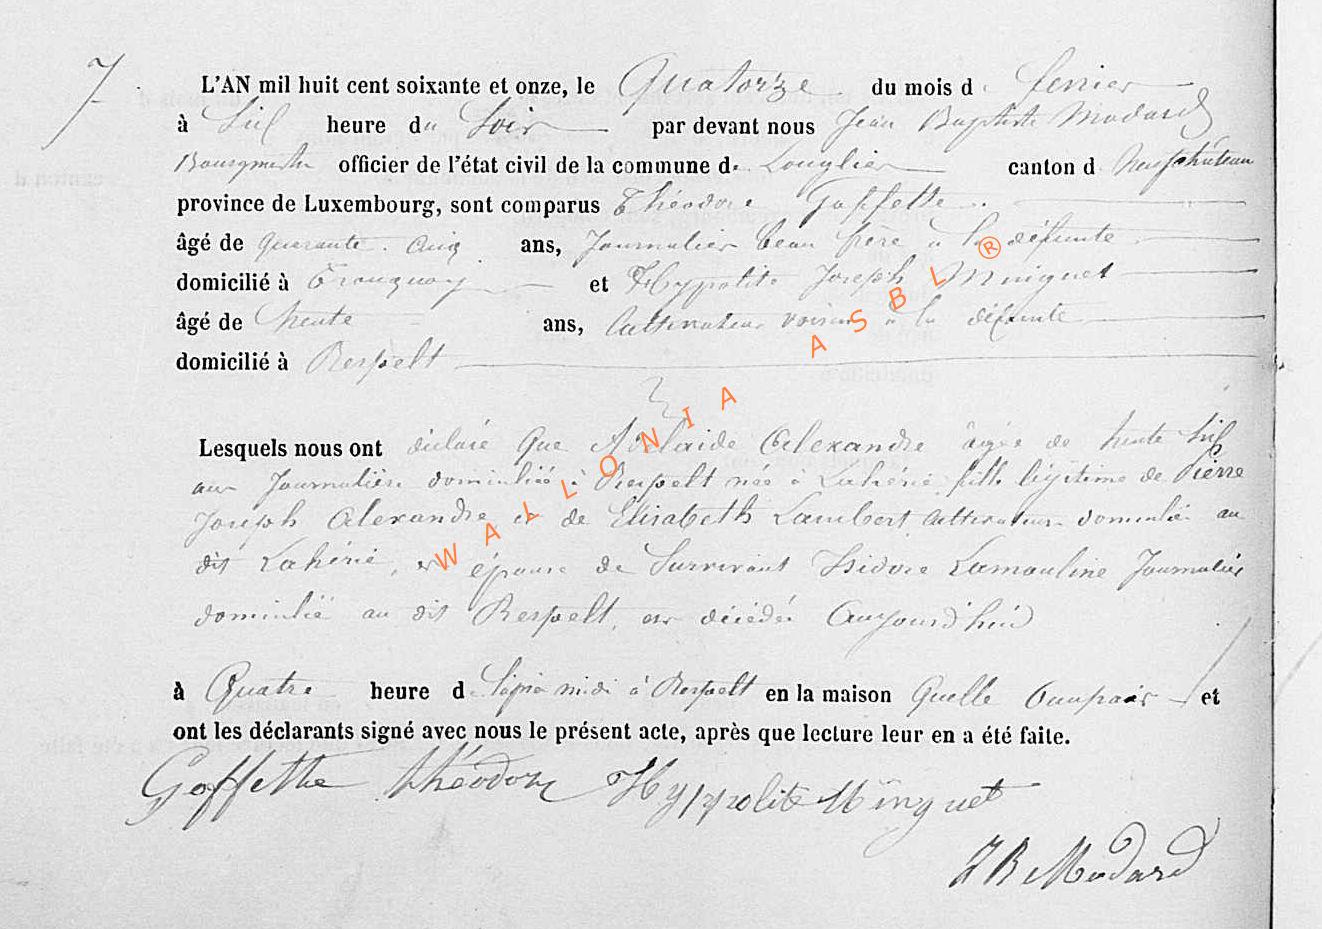 7
L'AN mil huit cent soixante et onze, le Quatorze du mois d fevrier
à Six heure du Soir par devant nous Jean Baptiste Modard
Bourgmestre officier de l'état civil de la commune de Longlier canton d Neufchateau
province de Luxembourg, sont comparus Théodore Goffette
âgé de quarante cinq ans, Journalier beau frère à la défunte
domicilié à Tronquoy et Hyppolite Joseph Minguet
âgé de trente ans, Cultivateur voisin à la défunte
domicilié à Respelt
Lesquels nous ont déclaré que Adélaide Alexandre âgée de trente six
ans Journalière domiciliée à Respelt née à Lahérie fille légitime de Pierre
Joseph Alexandre et de Elisabeth Lambert Cultivateur domicilié au
dit Lahérie, et épouse de Survivant Isidore Lamouline Journalier
domicilié au dit Respelt, est décédée Aujourd'hui
à Quatre heure d à Respelt en la maison Quelle Occupait et
ont les déclarants signé avec nous le présent acte, après que lecture leur en a été faite.
Goffette théodore Hyppolite Minguet
J B Modard
WALLONIA ASBL ®